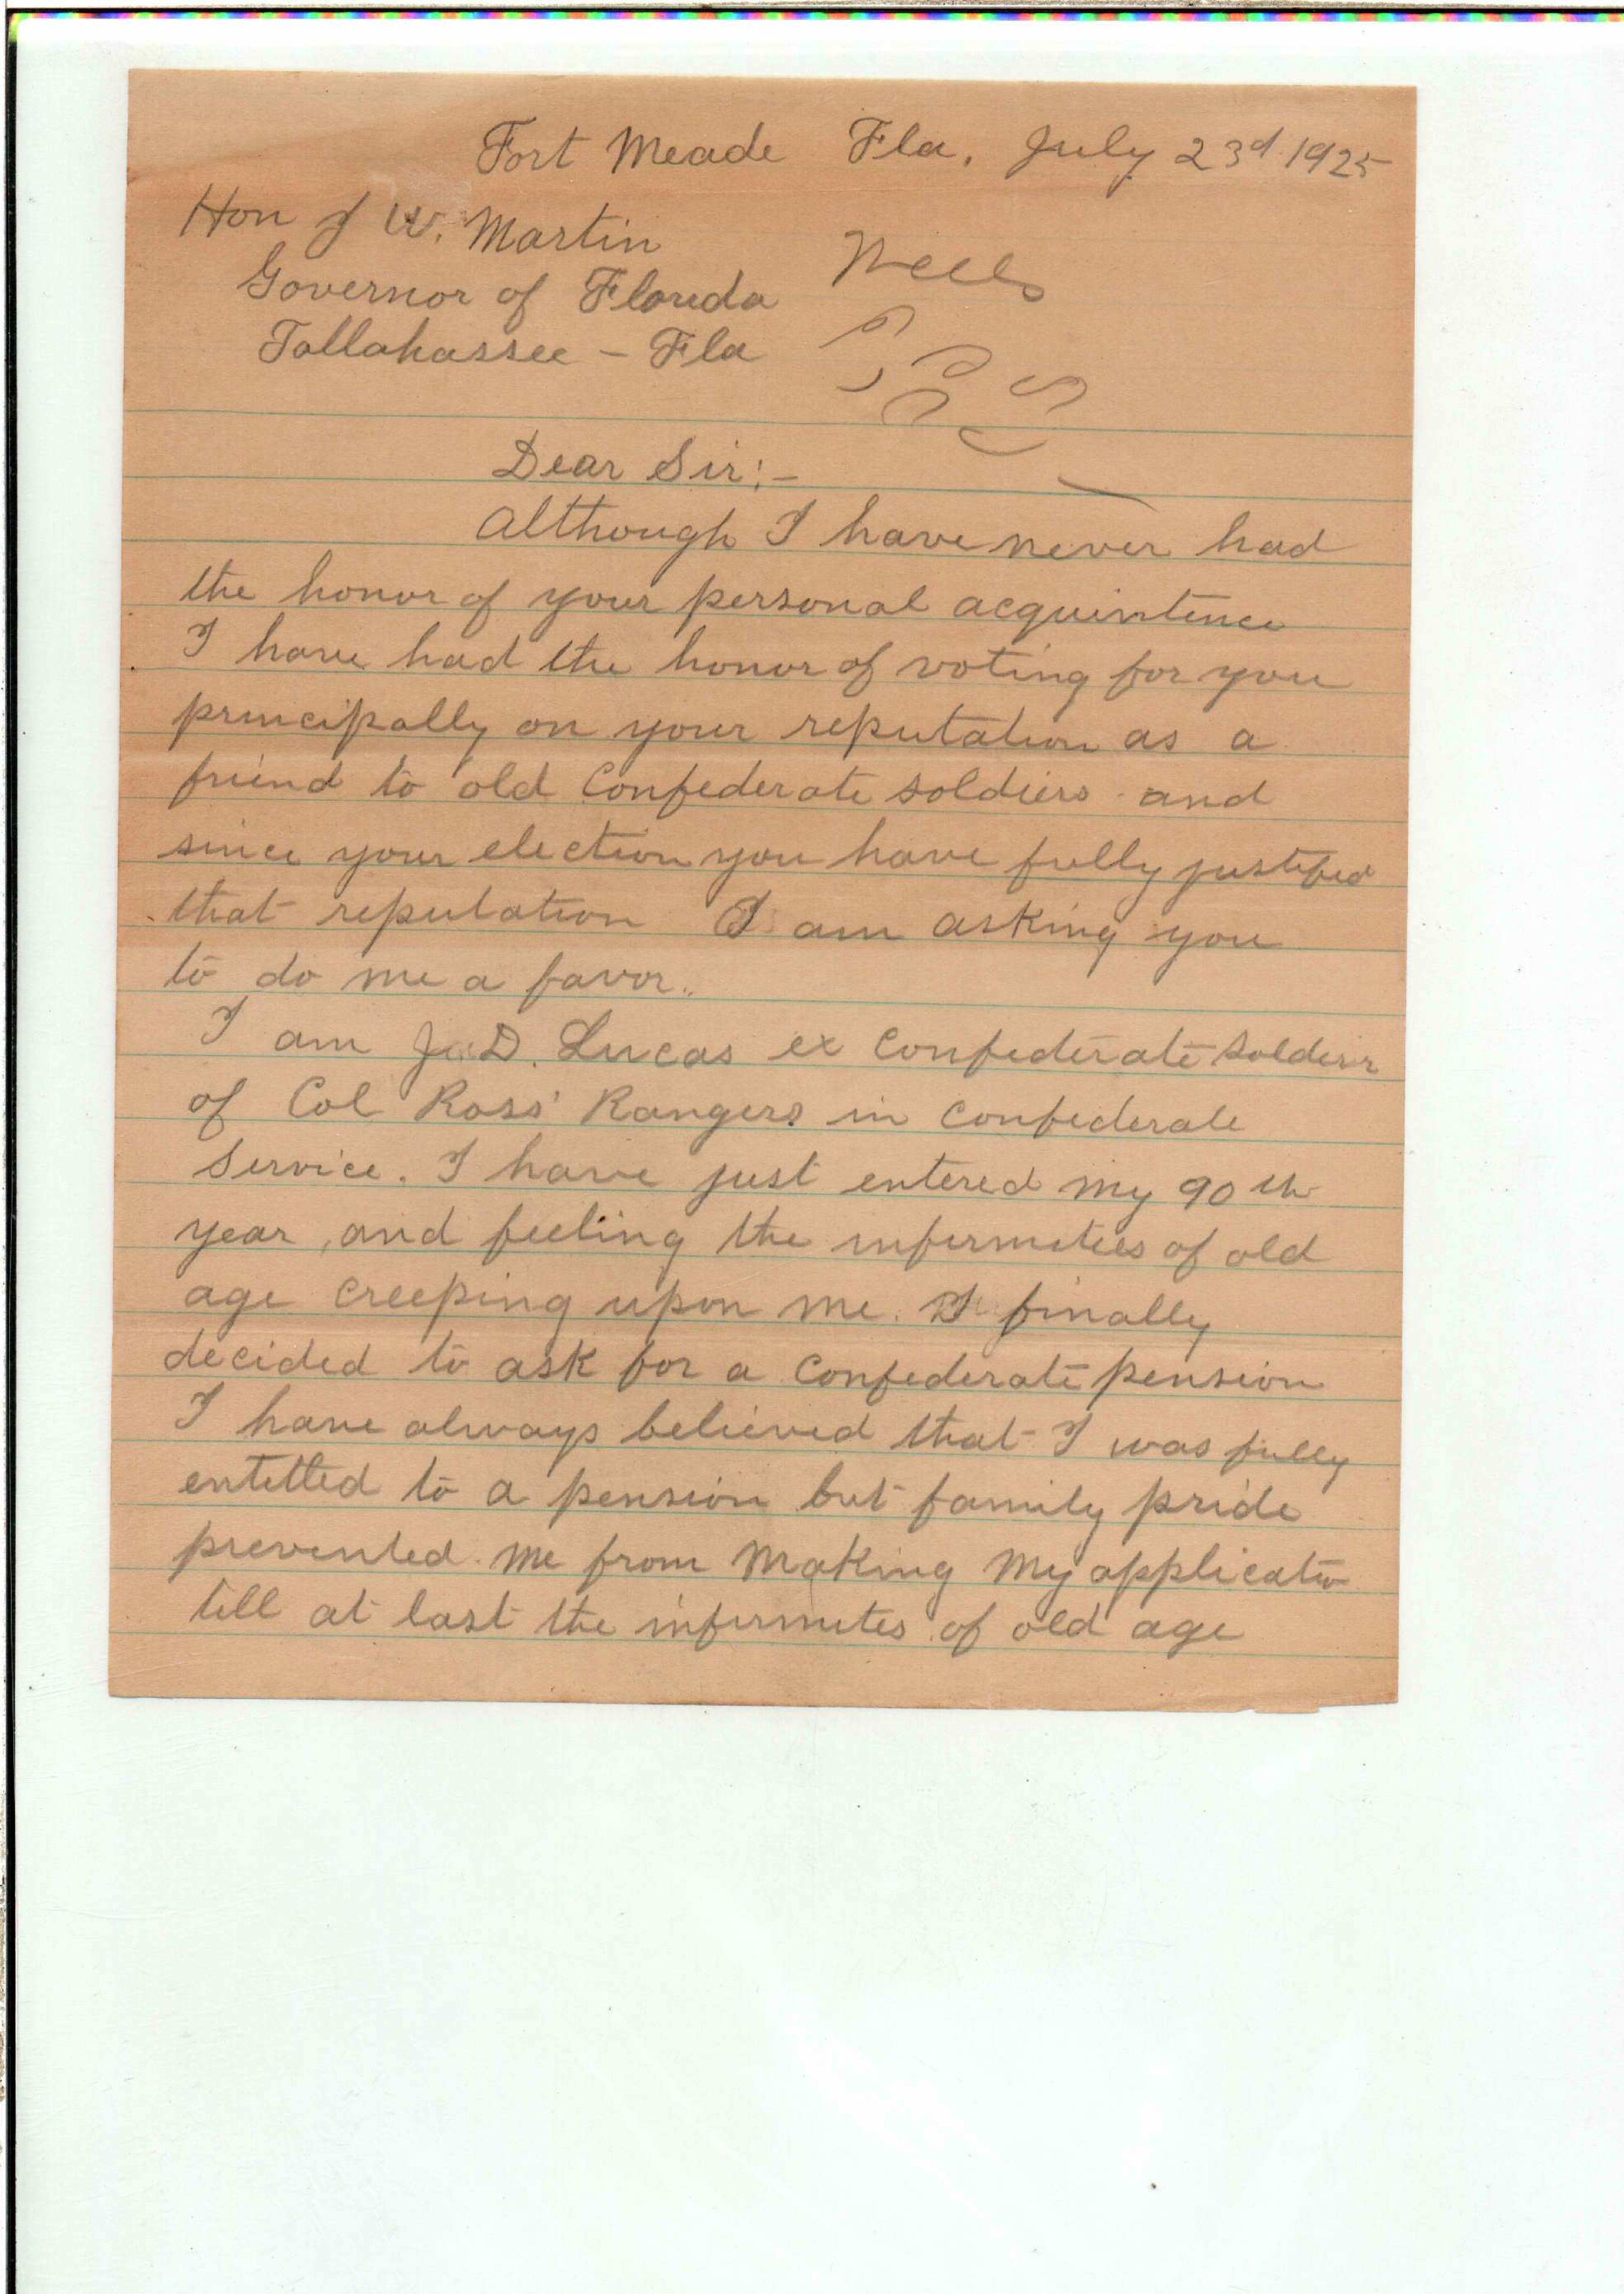 Fort Meade Fla. July 23rd 1925
Hon J W. Martin
Governor of Florida
Tallahassee - Fla
Dear Sir:-
Although I have never had
the honor of your personal acquintence
I have had the honor of voting for you
principally on your reputation as a
friend to old Confederate soldiers and
since your election you have fully justified
that reputation I am asking you
to do me a favor.
I am D. Lucas ex Confederate soldier
of Col Ross' Rangers in Confederate
Service. I have just entered my 90th
year, and feeling the infirmities of old
age creeping upon me. I finally
decided to ask for a Confederate pension
I have always believed that I was fully
entitled to a pension but family pride
prevented me from making my applicatio
till at last the infirmites of old age